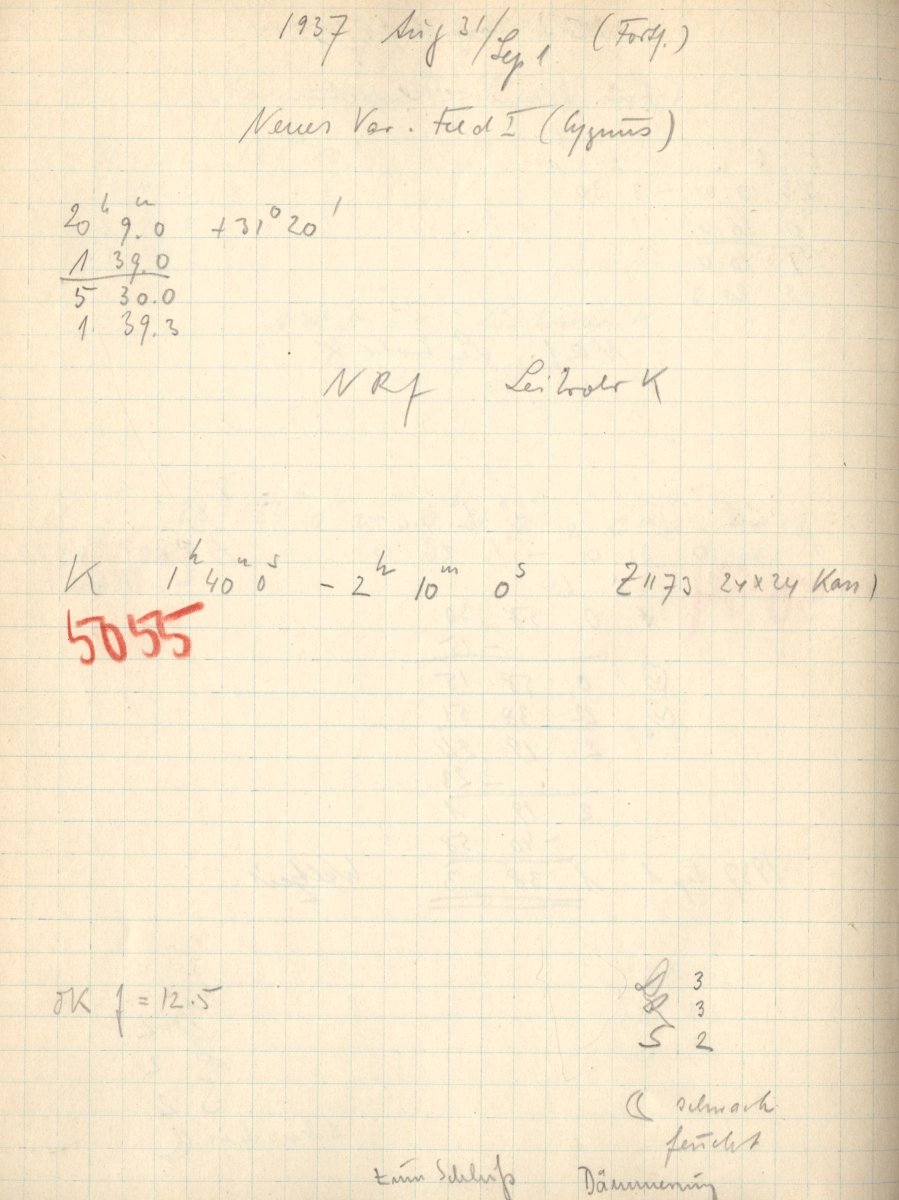 1937 Aug 31/Sep 1 (Forts.)
Neues Var. Feld I (Cygnus)
20h 9.0m +31° 20'
1 39.0
5 30.0
1 39.3
NRf Leitrohr K
K 1h 40m 0s - 2h 10m 0s Z1173 24x24 Kass)
5055
δK f = 12.5
3
R 3
S 2
☾ schwach
feucht
zum Schluß Dämmerung